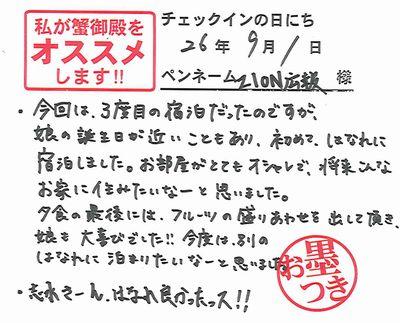 私が蟹御殿を
オススメ
します!!
チェックインの日にち
26年 9月 1日
ペンネーム ZION広報 様
・今回は、3度目の宿泊だったのですが、
娘の誕生日が近いこともあり、初めて、はなれに
宿泊しました。お部屋がとてもオシャレで、将来こんな
お家に住みたいなーと思いました。
夕食の最後には、フルーツの盛りあわせを出して頂き、
娘も大喜びでした!!今度は、別の
はなれに泊まりたいなーと思いました。
お墨つき
・志れさーん、はなれ良かったっス!!